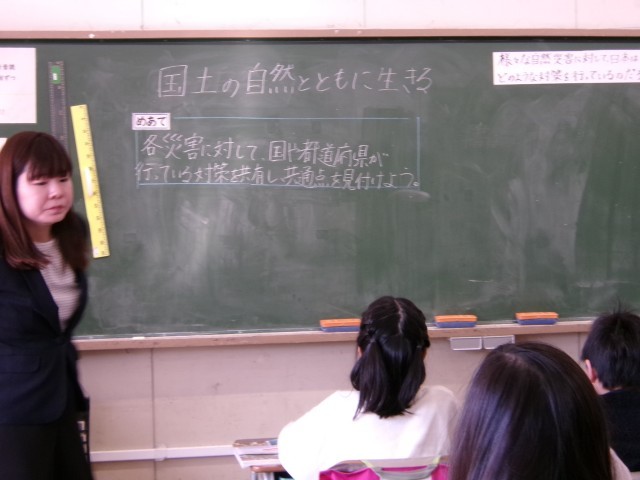 国土の自然とともに生きる
様々な自然災害に対して、日本は
どのような対策を行っているのだろ
めあて
各災害に対して、国や都道府県が
行っている対策を共有し、共通点を見付けよう。